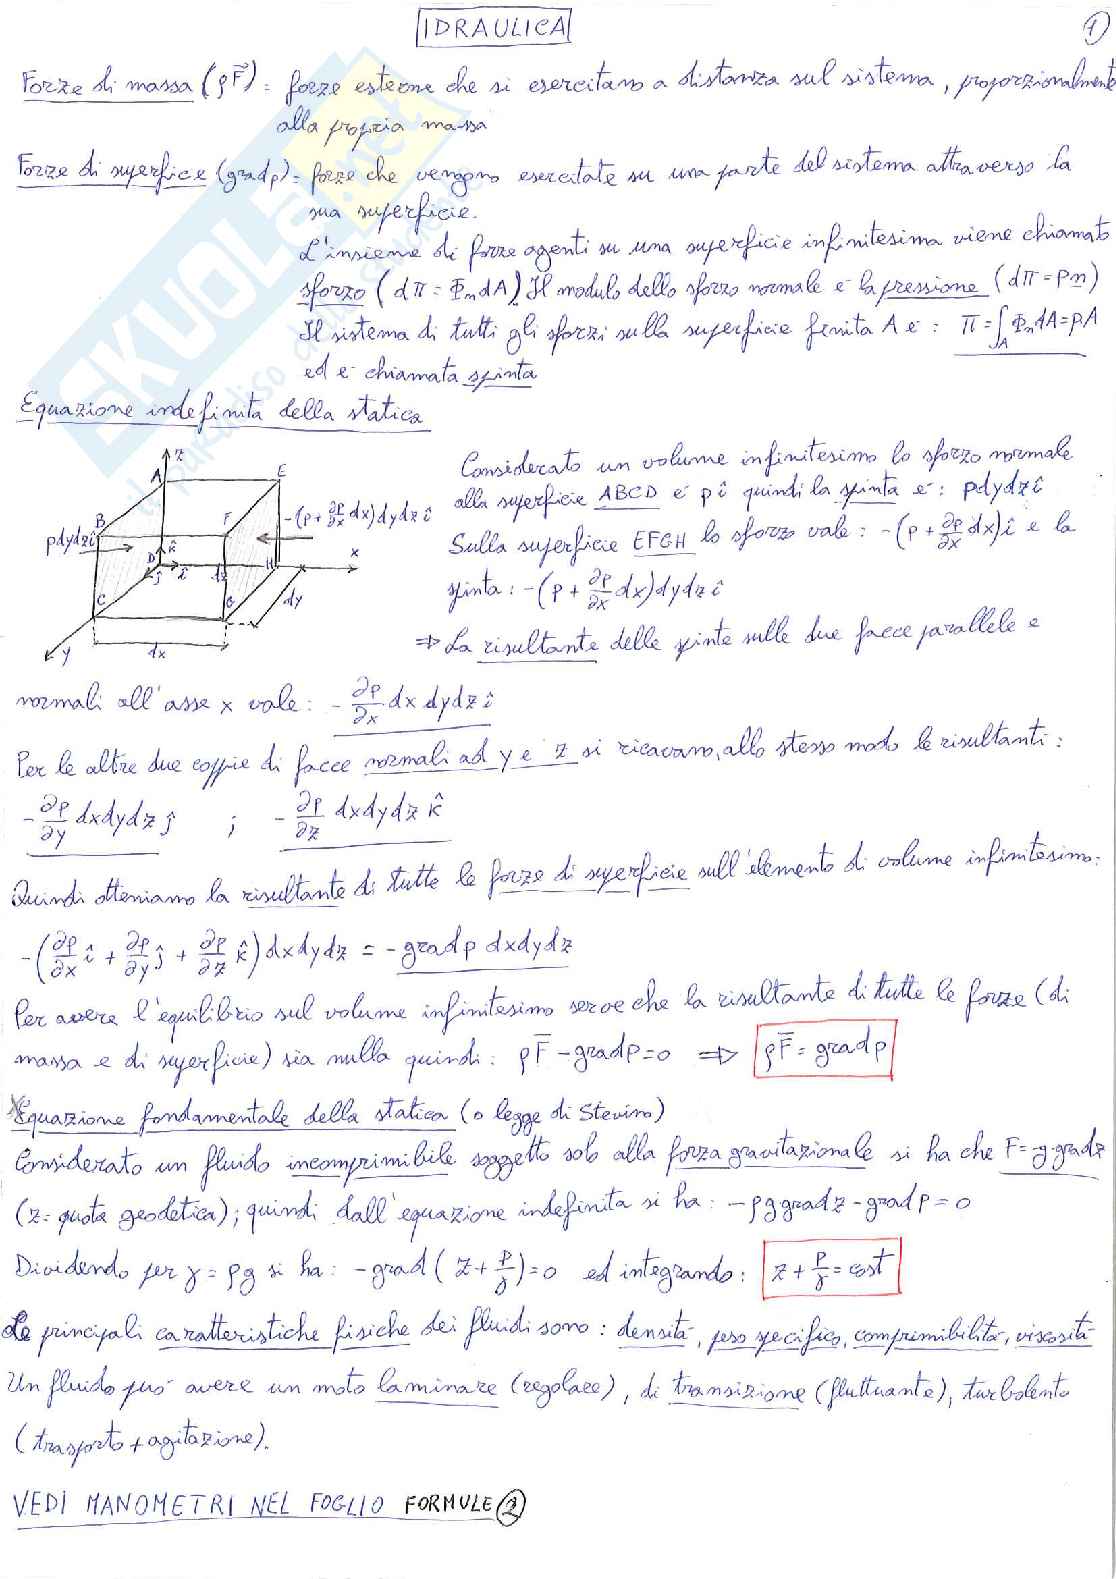 IDRAULICA
1
Forze di massa (ρF̄) = forze esterne che si esercitano a distanza sul sistema, proporzionalmente
alla propria massa
Forze di superficie (grad p) = forze che vengono esercitate su una parte del sistema attraverso la
sua superficie.
L'insieme di forze agenti su una superficie infinitesima viene chiamato
sforzo (dπ = Φn dA). Il modulo dello sforzo normale è la pressione (dπ = pn)
Il sistema di tutti gli sforzi sulla superficie finita A è: π = ∫A Φn dA = pA
ed è chiamata spinta
Equazione indefinita della statica
z
A
E
B
F
-(p + ∂p/∂x dx) dydz î
pdydz î
k̂
x
D
ĵ
î
dz
H
C
G
dy
y
dx
Considerato un volume infinitesimo lo sforzo normale
alla superficie ABCD è p î quindi la spinta è: pdydz î
Sulla superficie EFGH lo sforzo vale: -(p + ∂p/∂x dx) î e la
spinta: -(p + ∂p/∂x dx) dydz î
⇒ La risultante delle spinte sulle due facce parallele e
normali all'asse x vale: - ∂p/∂x dx dydz î
Per le altre due coppie di facce normali ad y e z si ricavano, allo stesso modo le risultanti:
- ∂p/∂y dxdydz ĵ ; - ∂p/∂z dxdydz k̂
Quindi otteniamo la risultante di tutte le forze di superficie sull'elemento di volume infinitesimo:
-(∂p/∂x î + ∂p/∂y ĵ + ∂p/∂z k̂) dxdydz = - grad p dxdydz
Per avere l'equilibrio sul volume infinitesimo serve che la risultante di tutte le forze (di
massa e di superficie) sia nulla quindi: ρF̄ - grad p = 0 ⇒ ρF̄ = grad p
Equazione fondamentale della statica (o legge di Stevino)
Considerato un fluido incomprimibile soggetto solo alla forza gravitazionale si ha che F = -g·grad z
(z = quota geodetica); quindi dall'equazione indefinita si ha: -ρg grad z - grad p = 0
Dividendo per γ = ρg si ha: -grad (z + p/γ) = 0 ed integrando: z + p/γ = cost
Le principali caratteristiche fisiche dei fluidi sono: densità, peso specifico, comprimibilità, viscosità
Un fluido può avere un moto laminare (regolare), di transizione (fluttuante), turbolento
(trasporto + agitazione).
VEDI MANOMETRI NEL FOGLIO FORMULE 2
SKUOLA.net
il paradiso dello studente